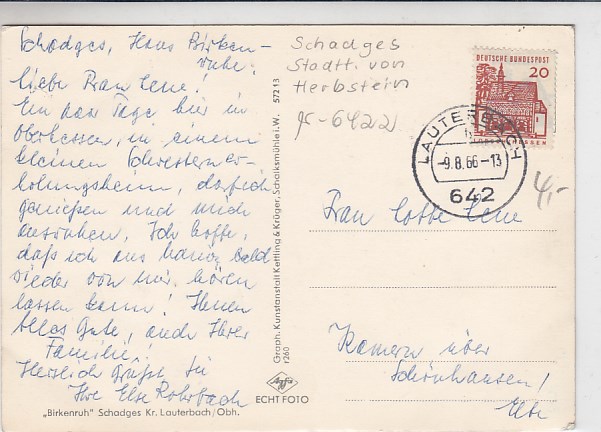 Schadges, Haus Birken-
ruhe!
Liebe Frau Lene!
Ein paar Tage bin ich in
Oberhessen, in einem
kleinen Schwesterner-
holungsheim, darf ich
genießen und mich
ausruhen. Ich hoffe,
daß ich aus Hanau bald
wieder von mir hören
lassen kann! Ihnen
alles Gute, auch Ihrer
Familie!
Herzlich grüßt Sie
Ihre Else Rohrbach
"Birkenruh" Schadges Kr. Lauterbach/Obh.
Graph. Kunstanstalt Kettling & Krüger, Schalksmühle i. W. 572 13
r260
Agfa
ECHT FOTO
Schadges
Stadtt. von
Herbstein
6422
DEUTSCHE BUNDESPOST
20
LAUTERBACH
-9.8.66-13
642
4,-
Frau Lotte Lene
Kamern über
Schönhausen/
Elbe